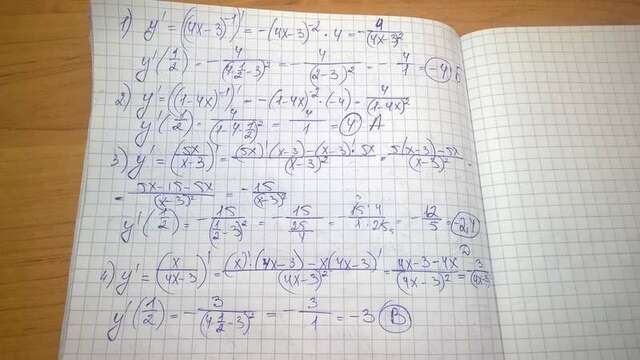 1) y' = ((4x-3)⁻¹)' = -(4x-3)⁻² · 4 = -4/(4x-3)²
y'(1/2) = -4/(4·1/2-3)² = -4/(2-3)² = -4/1 = -4 Б
2) y' = ((1-4x)⁻¹)' = -(1-4x)⁻² · (-4) = 4/(1-4x)²
y'(1/2) = 4/(1-4·1/2)² = 4/1 = 4 А
3) y' = (5x/(x-3))' = ((5x)'(x-3)-(x-3)'·5x)/(x-3)² = (5(x-3)-5x)/(x-3)² =
= (5x-15-5x)/(x-3)² = -15/(x-3)²
y'(1/2) = -15/(1/2-3)² = -15/(25/4) = -15·4/1·25 = -12/5 = -2,4
D
4) y' = (x/(4x-3))' = ((x)'·(4x-3)-x(4x-3)')/(4x-3)² = (4x-3-4x)/(4x-3)² = 3/(4x-3)
y'(1/2) = -3/(4·1/2-3)² = -3/1 = -3 В